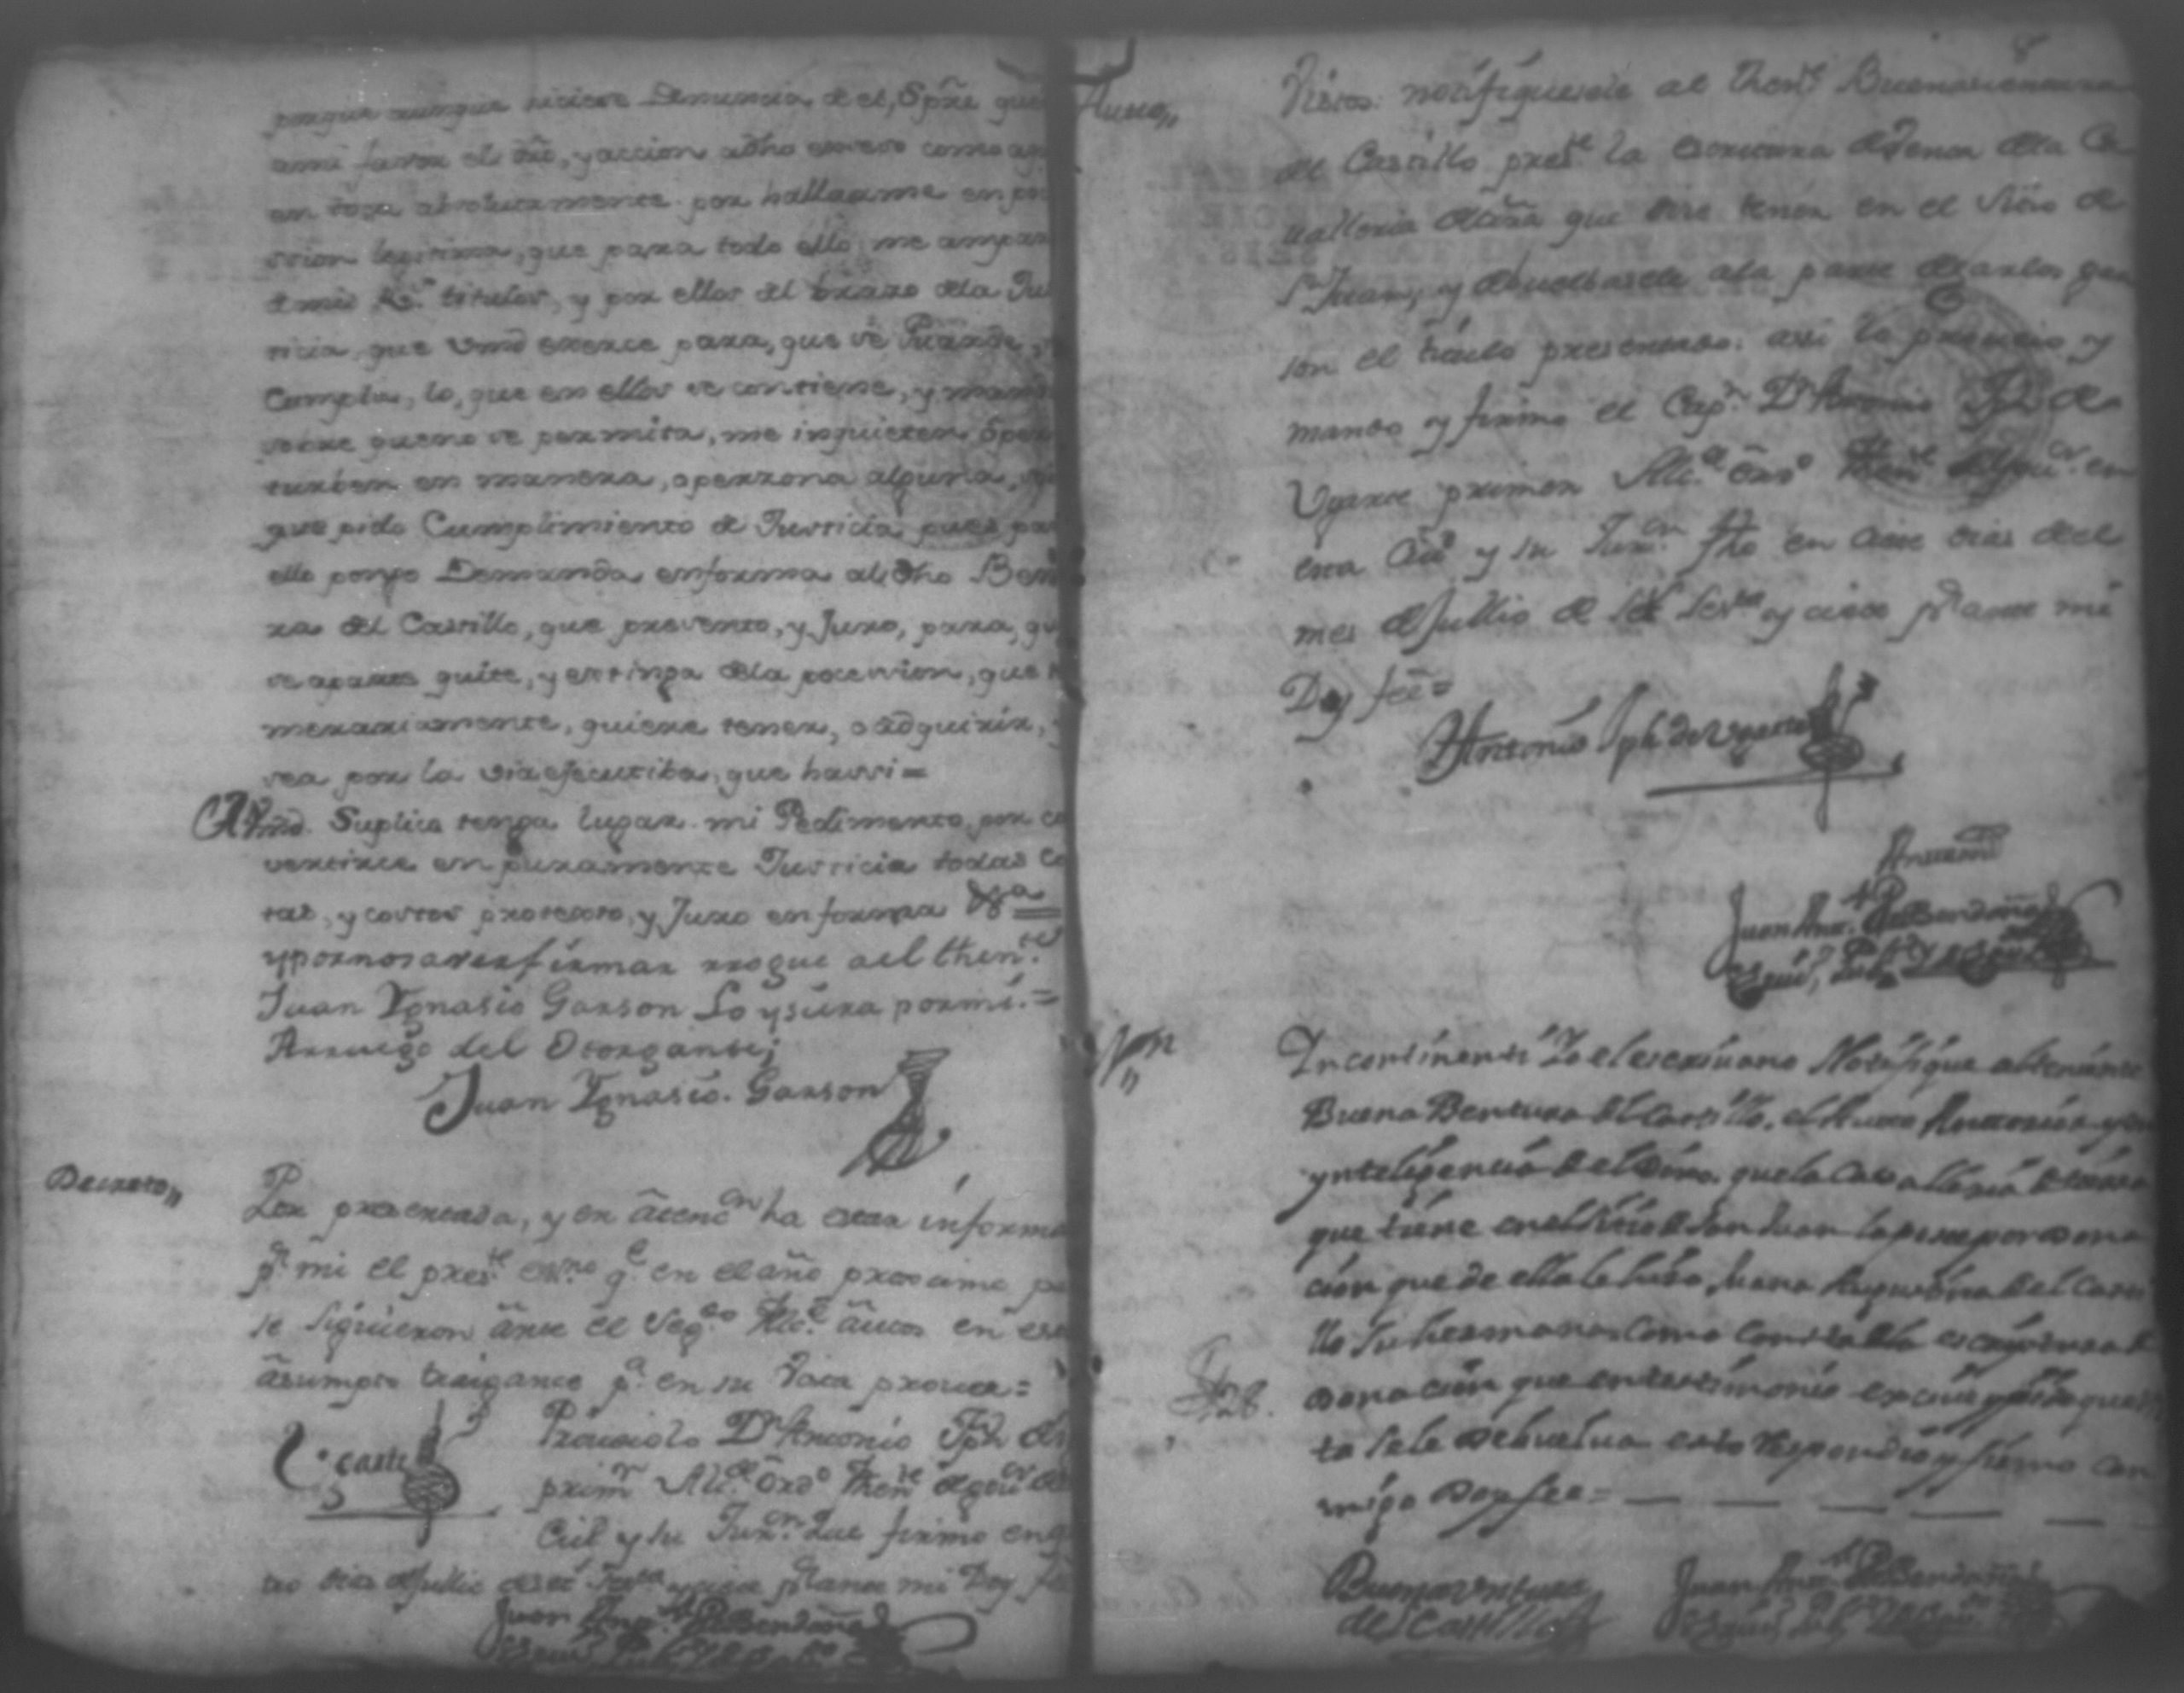 porque aunque hiciere Denuncia de el, Spñe que
ami favor el dro, y accion adho
en toda absolutamente por hallarme en po
ssion legitima, que para todo ello me ampar
demis Rs. titulos, y por ellos del brazo dela Jus
ticia, que Vmd exerce para, que se Guarde,
Cumpla, lo, que en ellos se contiene, y man
sobre que no se permita, me inquieten õper
turben en manera, opersona alguna,
que pido Cumplimiento de Justicia pues par
ello pongo Demanda enforma al dho Ben
ra del Castillo, que presento, y Juro, para, qu
se aparte quite, y extinga dela possession, que
merariamente, quiere tener, o adquirir,
sea por la via executiba, que hassi=
A Vmd. Suplico tenga lugar mi Pedimento, por co
vertirce en puramente Justicia todas Co
tas, y costos protesto, y Juro en forma Vsa =
y por no saver firmar rrogue ael then.te
Juan Ygnasio Garson Lo ysiera por mi. =
Arruego del Otorgante;
Juan Ygnasio. Garson
Decreto,,
Por presentada, y en atencon ha estar informa
pr. mi el preste essno qe. en el año proxcimo pa
se siguieron ante el Segdo Alce. autos en este
asumpto traiganse pa. en su Vista proveer=
Ugarte
Proveiolo Dn Antonio Jph de
primr Alce. Ordo Thente de govor de
Ciud y su Jurcon. que firmo en qu
tro dias de Jullio de ante mi Doy fee
Juan Anto. de Bendaña
Essno. Pubco.
8
Autto,,
Vistos: notifiquesele al Thente Buenaventura
del Castillo preste la escriptura de Venta dela Ca
valleria de tierra que dise tener en el Sitio de
Sn Juan, y debuelbasele ala parte de Carlos Gar
son el titulo presentado: assi lo proveio, y
mando y firmo el Capn. Dn Antonio Jph de
Ugarte primer Alce. Ordo Thente de Govor. en
esta Ciud y su Jurcon. fho en cinco dias deel
mes de Jullio de y cinco pr ante mi
Doy fee=
Dn Antonio Jph de Ugarte
Antte mi
Juan Anto. de Bendaña
Essno. Pubco.
Non,,
Incontinenti Yo el escrivano Notifique al teniente
Buena Bentura del Castillo, el Auto Anterior y en
ynteligencia del Dixo. que la Cavalleria de tierra
que tiene en el Sitio de San Juan la posee por dona
cion que de ella le hiso Juana del Casti
llo su hermana como consta dela escriptura de
donacion que en testimonio exsive y pide que
ta se le debuelva esto respondio y firmo con
migo Doy fee =
Buenaventura
del Castillo
Juan Anto. de Bendaña
Essno. Pubco.